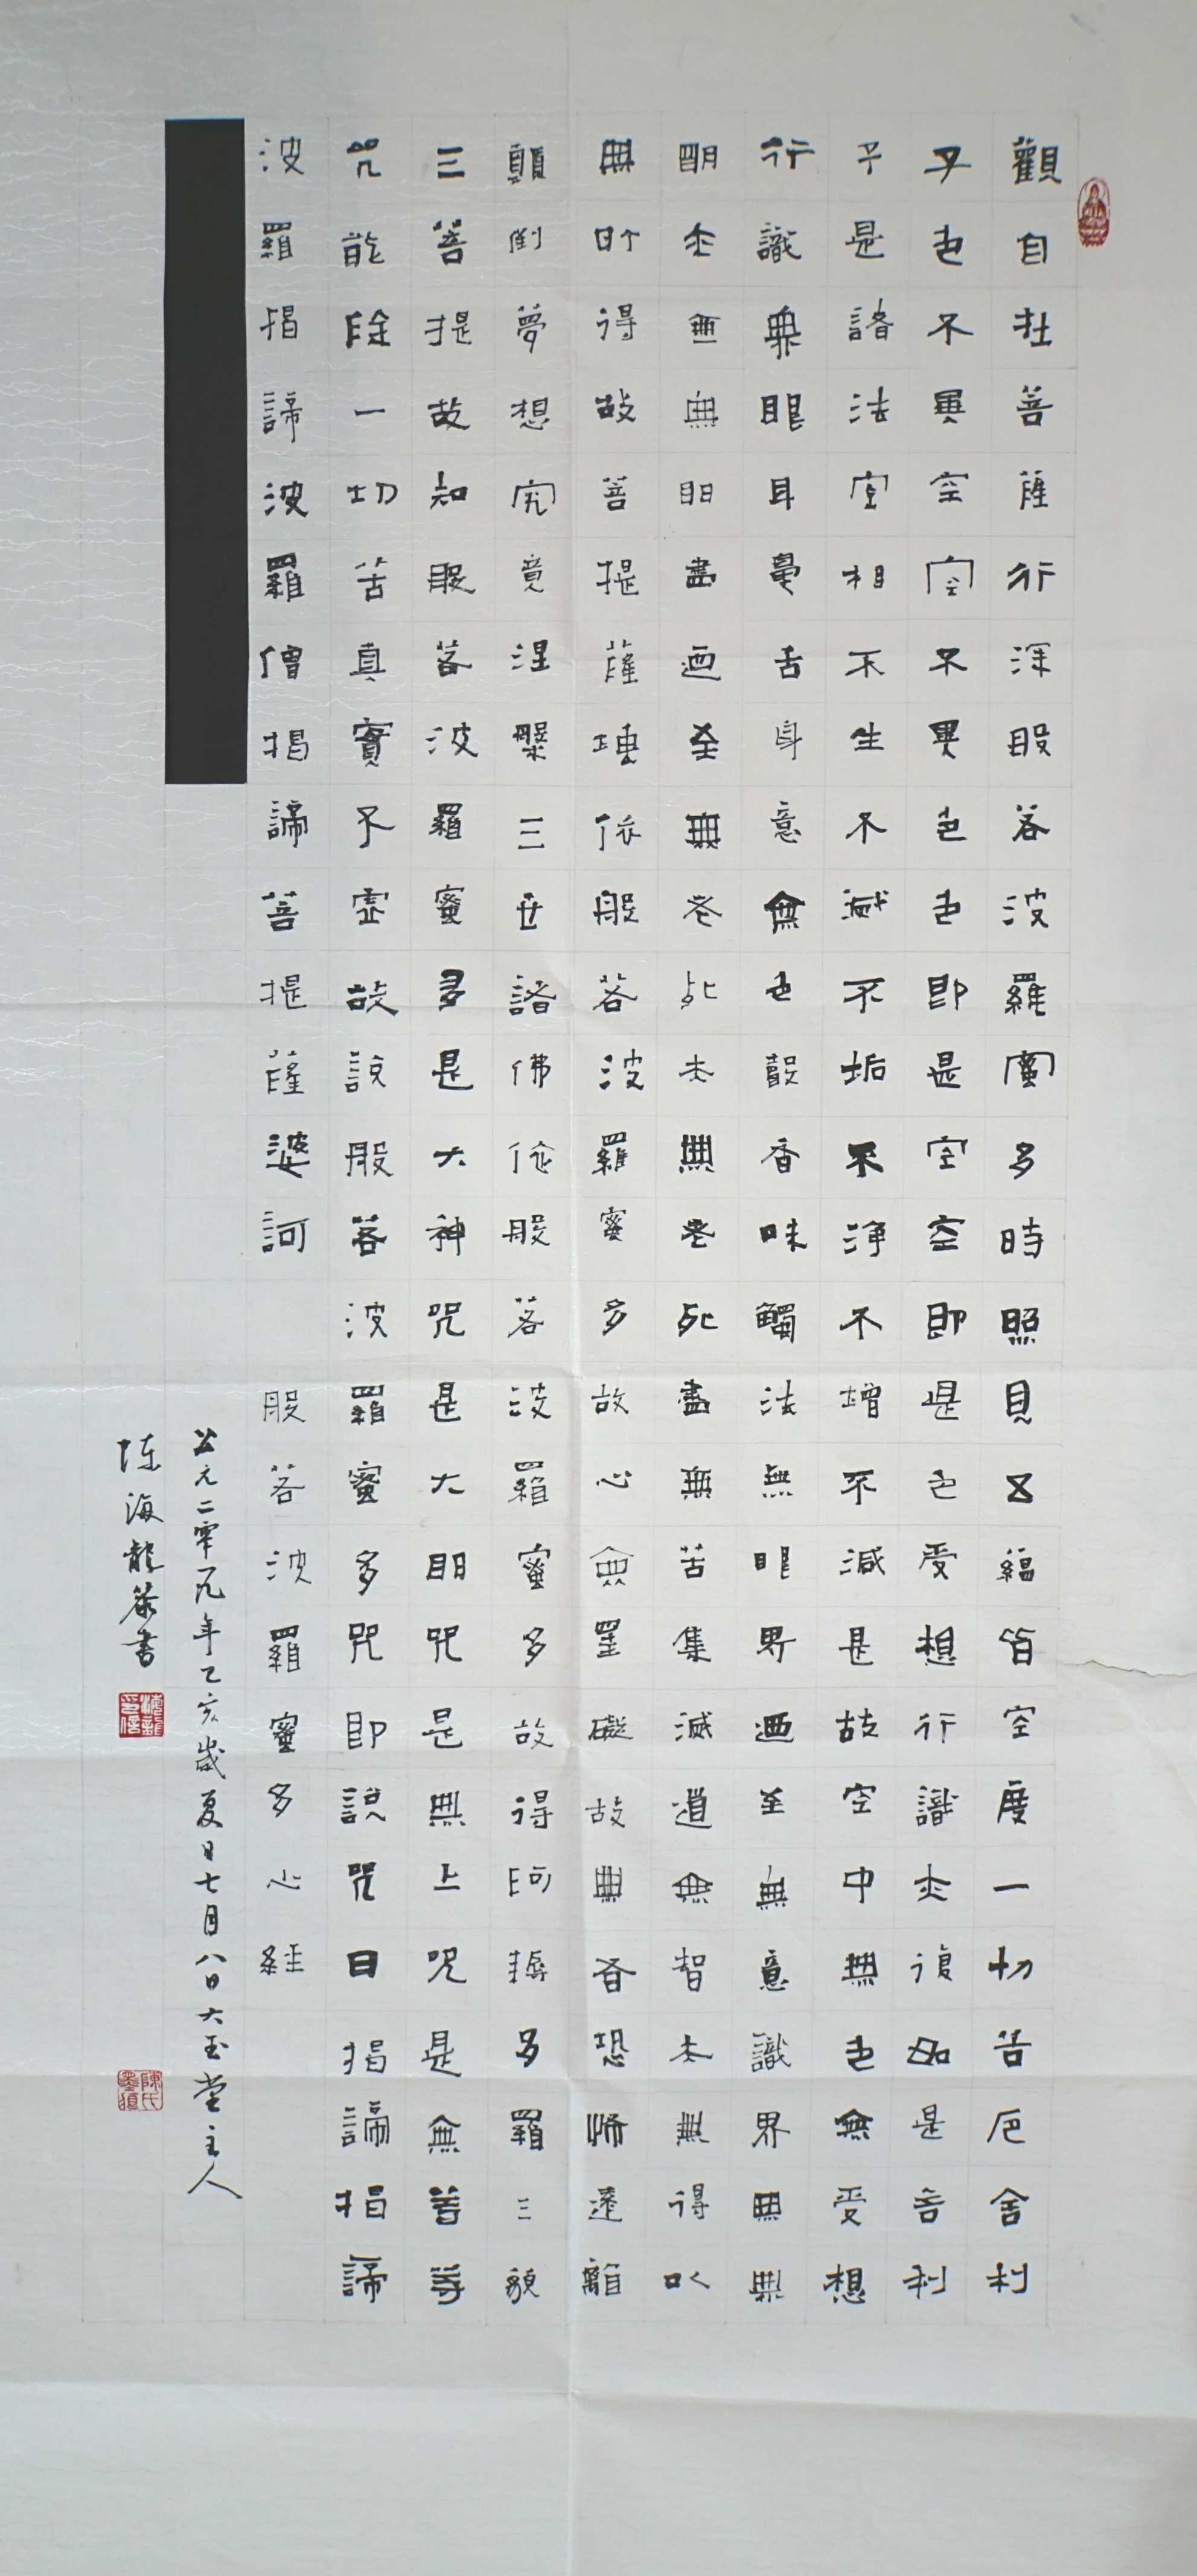 觀自在菩薩行深般若波羅蜜多時照見五蘊皆空度一切苦厄舍利
子色不異空空不異色色即是空空即是色受想行識亦復如是舍利
子是諸法空相不生不滅不垢不淨不增不減是故空中無色無受想
行識無眼耳鼻舌身意無色聲香味觸法無眼界廼至無意識界無無
明亦無無明盡廼至無老死亦無老死盡無苦集滅道無智亦無得以
無所得故菩提薩埵依般若波羅蜜多故心無罣礙故無有恐怖遠離
顛倒夢想究竟涅槃三世諸佛依般若波羅蜜多故得阿耨多羅三藐
三菩提故知般若波羅蜜多是大神咒是大明咒是無上咒是無等等
咒能除一切苦真實不虛故說般若波羅蜜多咒即說咒曰揭諦揭諦
波羅揭諦波羅僧揭諦菩提薩婆訶 般若波羅蜜多心經
公元二零一九年乙亥歲夏日七月八日大玉堂主人
陈海龍恭書
海龍印信